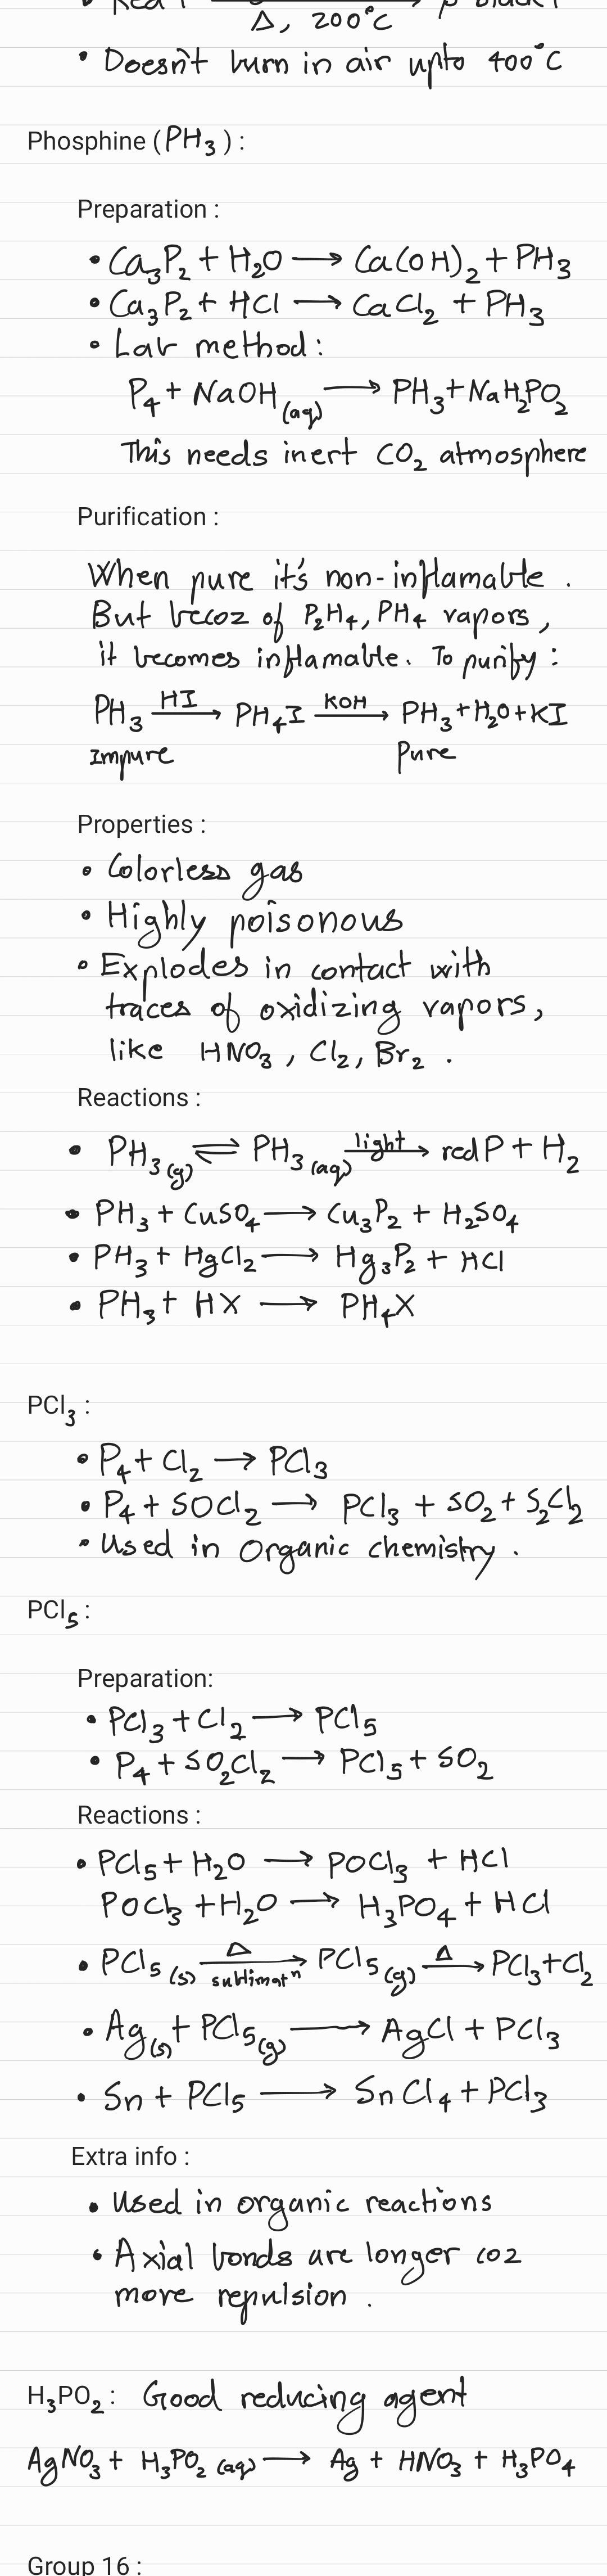 Δ, 200°C
• Doesn't burn in air upto 400°C
Phosphine (PH₃) :
Preparation :
• Ca₃P₂ + H₂O ⟶ Ca(OH)₂ + PH₃
• Ca₃P₂ + HCl ⟶ CaCl₂ + PH₃
• Lab method:
P₄ + NaOH (aq) ⟶ PH₃ + NaH₂PO₂
This needs inert CO₂ atmosphere
Purification :
When pure it's non-inflamable .
But becoz of P₂H₄, PH₄ vapors,
it becomes inflamable. To purify :
PH₃ —HI→ PH₄I —KOH→ PH₃ + H₂O + KI
Impure Pure
Properties :
• Colorless gas
• Highly poisonous
• Explodes in contact with
traces of oxidizing vapors,
like HNO₃, Cl₂, Br₂ .
Reactions :
• PH₃(g) ⇌ PH₃(aq) —light→ red P + H₂
• PH₃ + CuSO₄ ⟶ Cu₃P₂ + H₂SO₄
• PH₃ + HgCl₂ ⟶ Hg₃P₂ + HCl
• PH₃ + HX ⟶ PH₄X
PCl₃ :
• P₄ + Cl₂ ⟶ PCl₃
• P₄ + SOCl₂ ⟶ PCl₃ + SO₂ + S₂Cl₂
• Used in Organic chemistry .
PCl₅ :
Preparation:
• PCl₃ + Cl₂ ⟶ PCl₅
• P₄ + SO₂Cl₂ ⟶ PCl₅ + SO₂
Reactions :
• PCl₅ + H₂O ⟶ POCl₃ + HCl
POCl₃ + H₂O ⟶ H₃PO₄ + HCl
• PCl₅(s) —Δ sublimatⁿ→ PCl₅(g) —Δ→ PCl₃ + Cl₂
• Ag(s) + PCl₅(g) ⟶ AgCl + PCl₃
• Sn + PCl₅ ⟶ SnCl₄ + PCl₃
Extra info :
• Used in organic reactions
• Axial bonds are longer coz
more repulsion .
H₃PO₂ : Good reducing agent
AgNO₃ + H₃PO₂ (aq) ⟶ Ag + HNO₃ + H₃PO₄
Group 16 :